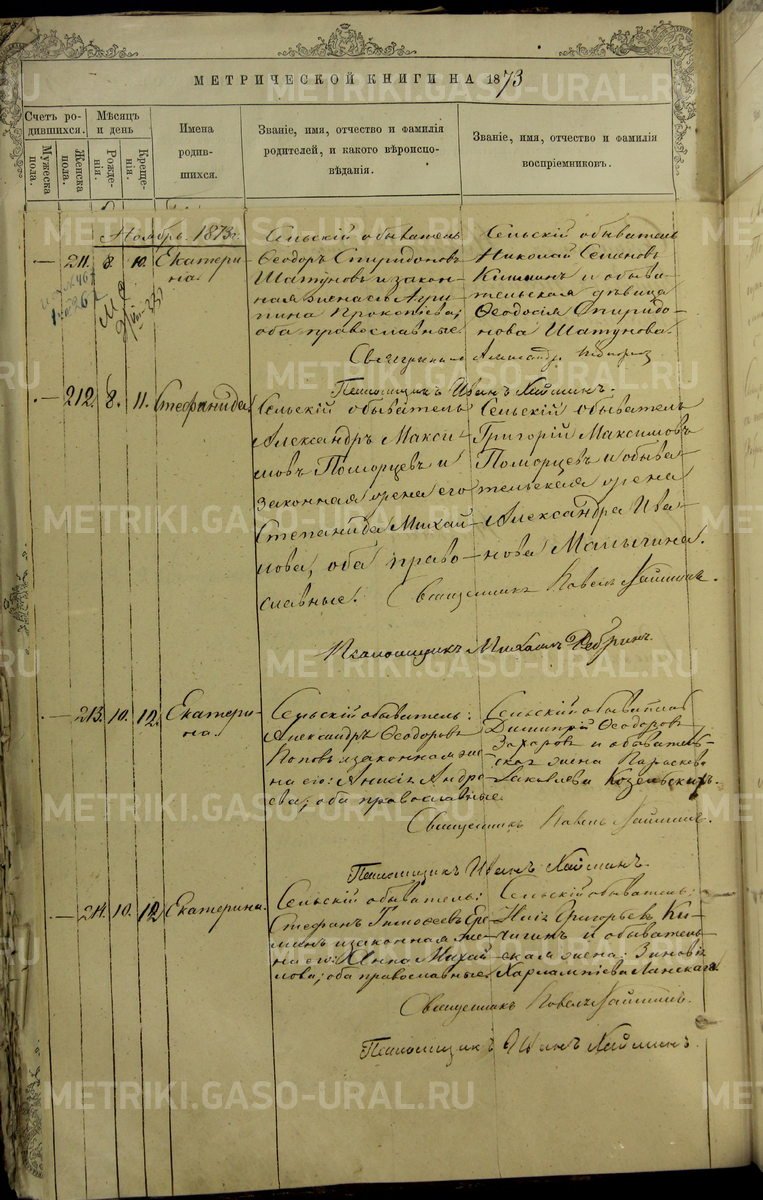 МЕТРИЧЕСКОЙ КНИГИ НА 1873
Счетъ ро-
дившихся.
Мѣсяцъ
и день
Мужеска
пола.
Женска
пола.
Рожде-
нія.
Креще-
нія.
Имена
родив-
шихся.
Званіе, имя, отчество и фамилія
родителей, и какого вѣроиспо-
вѣданія.
Званіе, имя, отчество и фамилія
воспріемниковъ.
Ноябрь 1873 г.
— 211. 8. 10. Екатери-
на.
Сельскій обыватель
Ѳеодоръ Спиридоновъ
Шатуновъ и закон-
ная жена его Агри-
пина Прокопіева;
оба православные.
Сельскій обыватель
Николай Семеновъ
и обыва-
тельская дѣвица
Ѳеодосія Спиридо-
нова Шатунова.
Священникъ Александръ
Псаломщикъ Иванъ Хайминъ.
— 212. 8. 11. Стефанида.
Сельскій обыватель
Александръ Макси-
мовъ Поморцевъ и
законная жена его
Степанида Михай-
лова, оба право-
славные.
Сельскій обыватель
Григорій Максимовъ
Поморцевъ и обыва-
тельская жена
Александра Ива-
нова Мамычина.
Священникъ Павелъ Хайминъ.
Псаломщикъ Михаилъ Ребринъ.
— 213. 10. 12. Екатери-
на.
Сельскій обыватель:
Александръ Ѳеодоровъ
Поповъ и законная же-
на его: Анисія Андре-
ева; оба православные.
Сельскій обыватель
Димитрій Ѳеодоровъ
Захаровъ и обыватель-
ская жена Параскева
Іаковлева Козельскихъ.
Священникъ Павелъ Хайминъ.
Псаломщикъ Иванъ Хайминъ.
— 214. 10. 12. Екатерина.
Сельскій обыватель:
Стефанъ Тимоѳеевъ Ере-
минъ и законная же-
на его: Анна Михай-
лова; оба православные.
Сельскій обыватель;
Григорьевъ Ки-
чигинъ и обыватель-
ская жена: Зиновія
Харлампіева Ланскихъ.
Священникъ Павелъ Хайминъ.
Псаломщикъ Иванъ Хайминъ.
METRIKI.GASO-URAL.RU